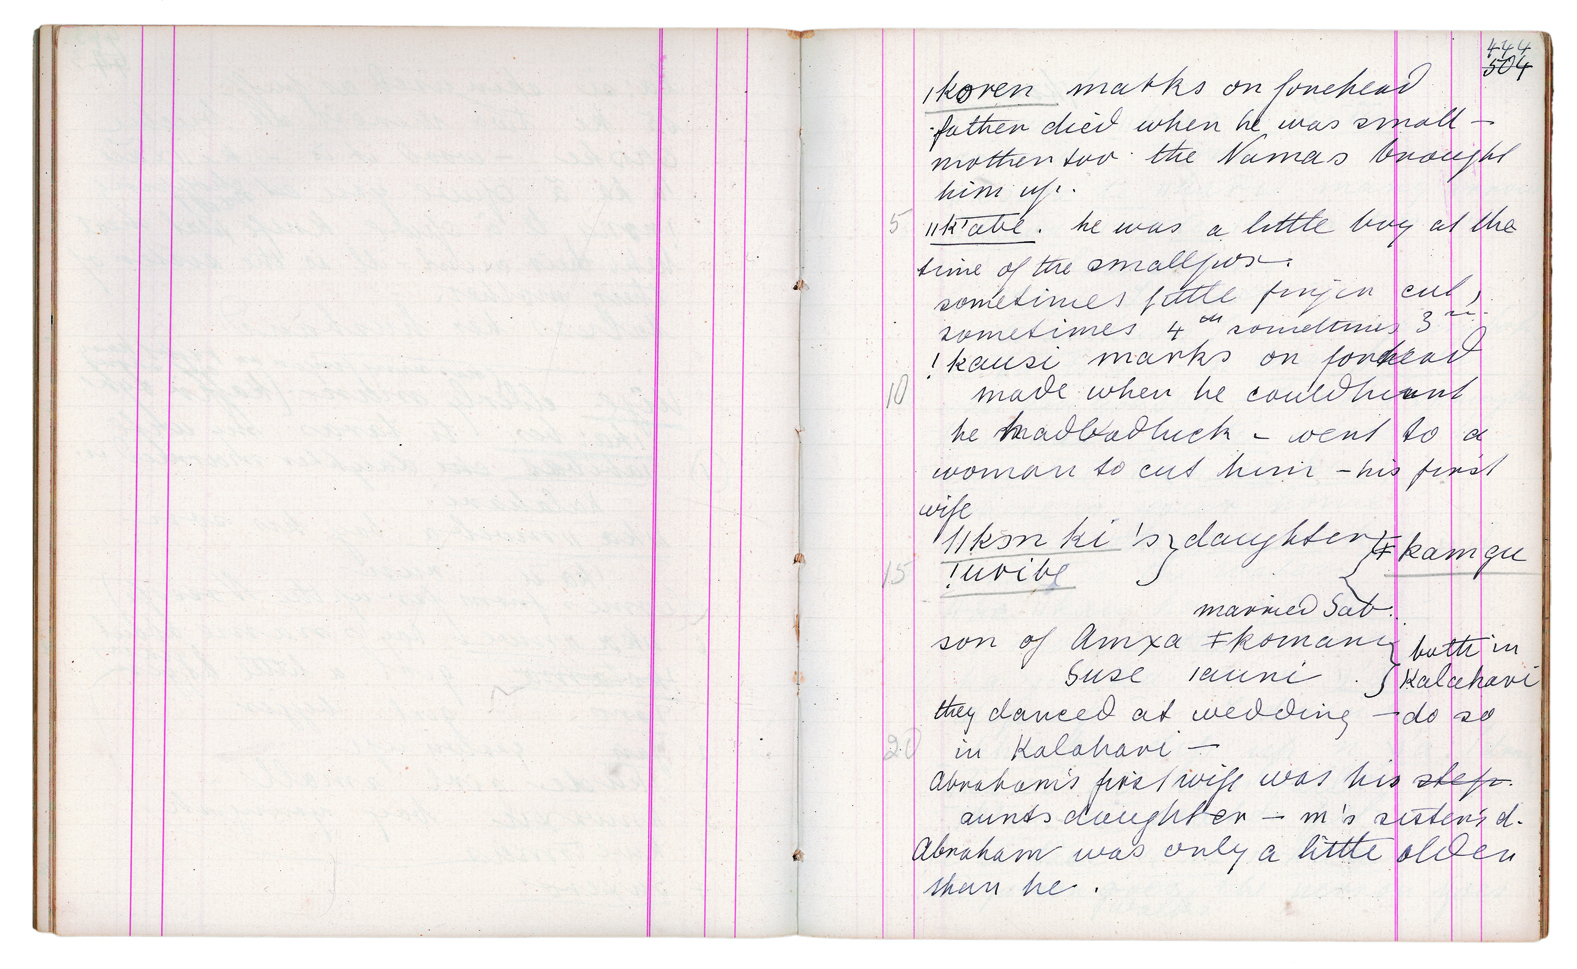 444
504
ǀkoren marks on forehead
father died when he was small –
mother too. the Namas brought
him up.
5 ǁk'abe. he was a little boy at the
time of the smallpox.
sometimes little finger cut,
sometimes 4th sometimes 3rd.
!kausi marks on forehead
10 made when he could hunt
he had bad luck – went to a
woman to cut him – his first
wife
ǁkɔn ki's } daughter } ǂkamgu
15 !uribe
married Sat.
son of Amxa ǂkomani } both in
Suse ǀauni } Kalahari
they danced at wedding – do so
20 in Kalahari –
Abraham's first wife was his step.
aunts daughter – m's sister's d.
Abraham was only a little older
than he.